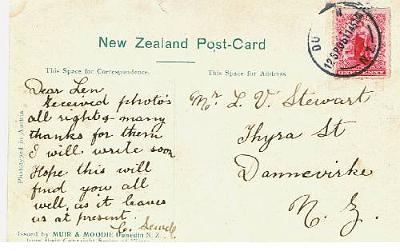 New Zealand Post-Card
This Space for Correspondence.
This Space for Address
Dear Len
Received photos
all right & many
thanks for them
I will write soon
Hope this will
find you all
well, as it leaves
us at present.
Mr L. V. Stewart
Thyra St
Dannevirke
N. Z.
Issued by MUIR & MOODIE Dunedin N. Z.
from their Copyright Series of
ONE PENNY
N.Z.